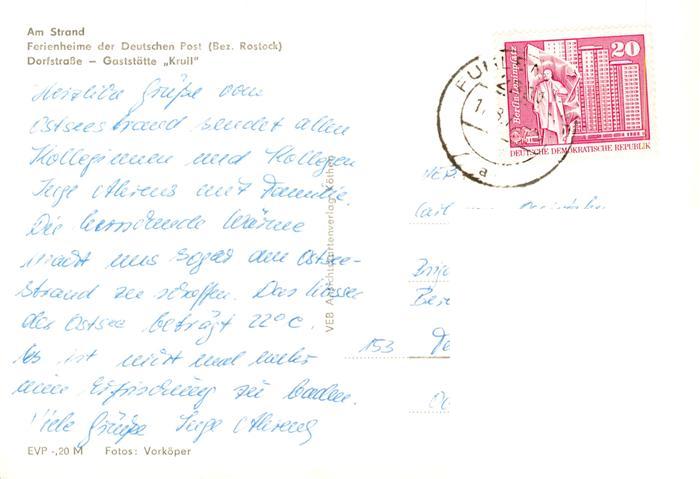 Am Strand
Ferienheime der Deutschen Post (Bez. Rostock)
Dorfstraße – Gaststätte „Krull"
Herzliche Grüße vom
Ostseestrand sendet allen
Kolleginnen und Kollegen
Inge Ahrens mit Familie.
Die herrschende Wärme
macht uns sogar am Ostsee-
strand zu schaffen. Das Wasser
der Ostsee beträgt 22°C.
Es ist nicht mal mehr
eine Erfrischung zu baden.
Viele Grüße Inge Ahrens
EVP -,20 M Fotos: Vorköper
VEB Ansichtskartenverlag Köthen
20
Berlin, Leninplatz
DEUTSCHE DEMOKRATISCHE REPUBLIK
a
VEB
153